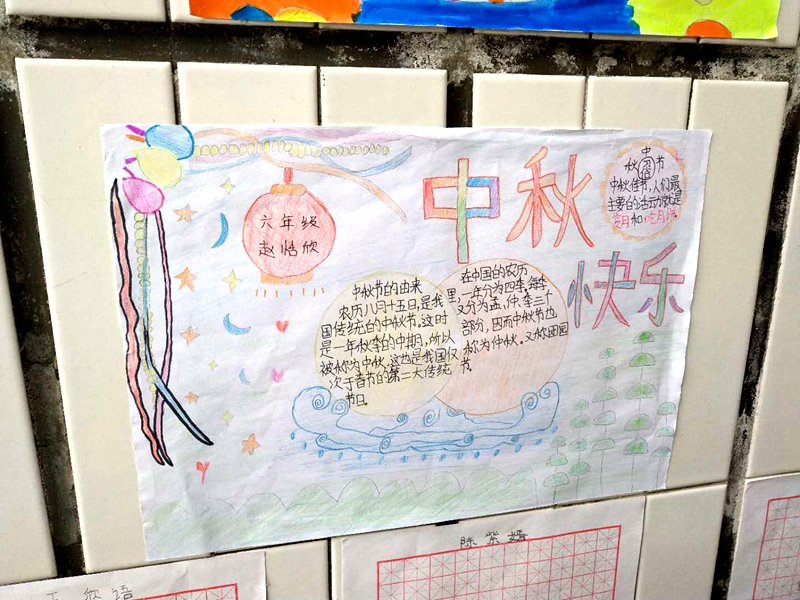 中秋
快乐
六年级
赵恬欣
中
秋 节
中秋佳节,人们最
主要的活动就是
赏月和吃月饼
中秋节的由来
农历八月十五日,是我
国传统的中秋节。这时
是一年秋季的中期,所以
被称为中秋。这也是我国仅
次于春节的第二大传统
节日。
在中国的农历
里,一年分为四季,每季
又分为孟、仲、季三个
部分,因而中秋节也
称为仲秋。又称田园
节。
陈紫嫣